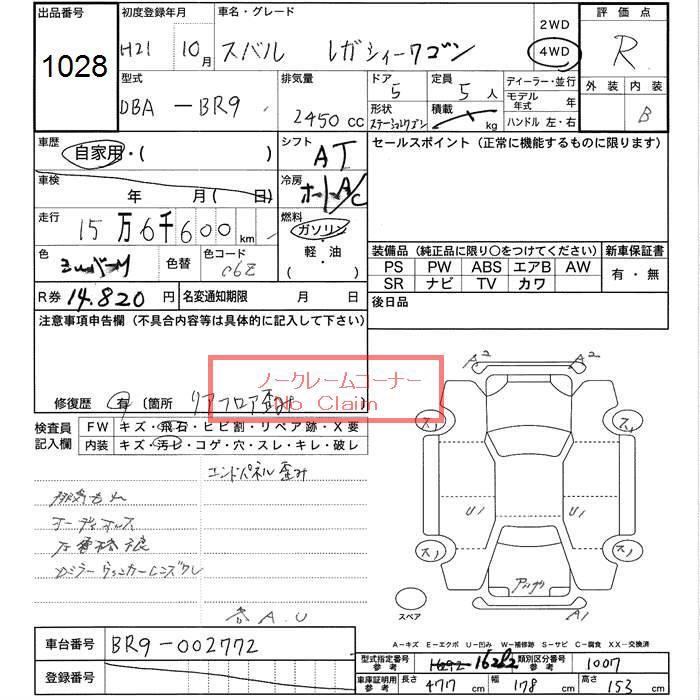 出品番号 初度登録年月 車名・グレード 2WD 評価点
1028 H21 10月 スバル レガシィーワゴン 4WD R
型式 排気量 ドア 定員 ディーラー・並行 外装 内装
DBA-BR9 2450cc 5 5人 モデル年式 年 B
形状 積載 ハンドル 左・右
ステーションワゴン kg
車歴 シフト セールスポイント(正常に機能するものに限ります)
自家用・( ) AT
車検 冷房
年 月(日) A/C
走行 燃料
15万6千600km ガソリン
色 色替 色コード 軽・油 装備品(純正品に限り〇をつけてください) 新車保証書
C6Z ( ) PS PW ABS エアB AW 有・無
SR ナビ TV カワ
R券 14.820円 名変通知期限 月 日 後日品
注意事項申告欄(不具合内容等は具体的に記入して下さい)
ノークレームコーナー
No Claim
修復歴 有(箇所 リアフロア歪み )
検査員 FW キズ・飛石・ヒビ割・リペア跡・X要
記入欄 内装 キズ・汚レ・コゲ・穴・スレ・キレ・破レ
エンドパネル歪み
A2 A2
ス1 ス1
U1 U1
ス1 ス1
A1
スペア
A-キズ E-エクボ U-凹み W-補修跡 S-サビ C-腐食 XX-交換済
車台番号 BR9-002772
型式指定番号参考 16282 類別区分番号参考 1007
登録番号 車庫証明用参考 長さ 477cm 幅 178cm 高さ 153cm